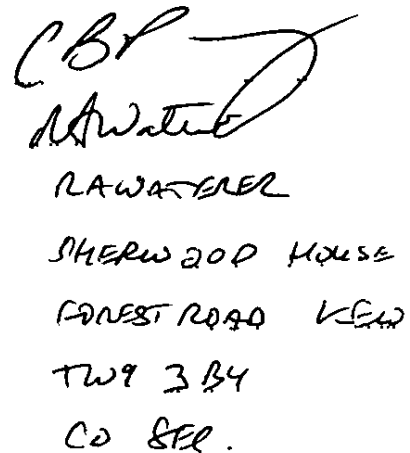 RAWaterer
RAWATERER
SHERWOOD HOUSE
FOREST ROAD KEW
TW9 3BY
CO SEC.